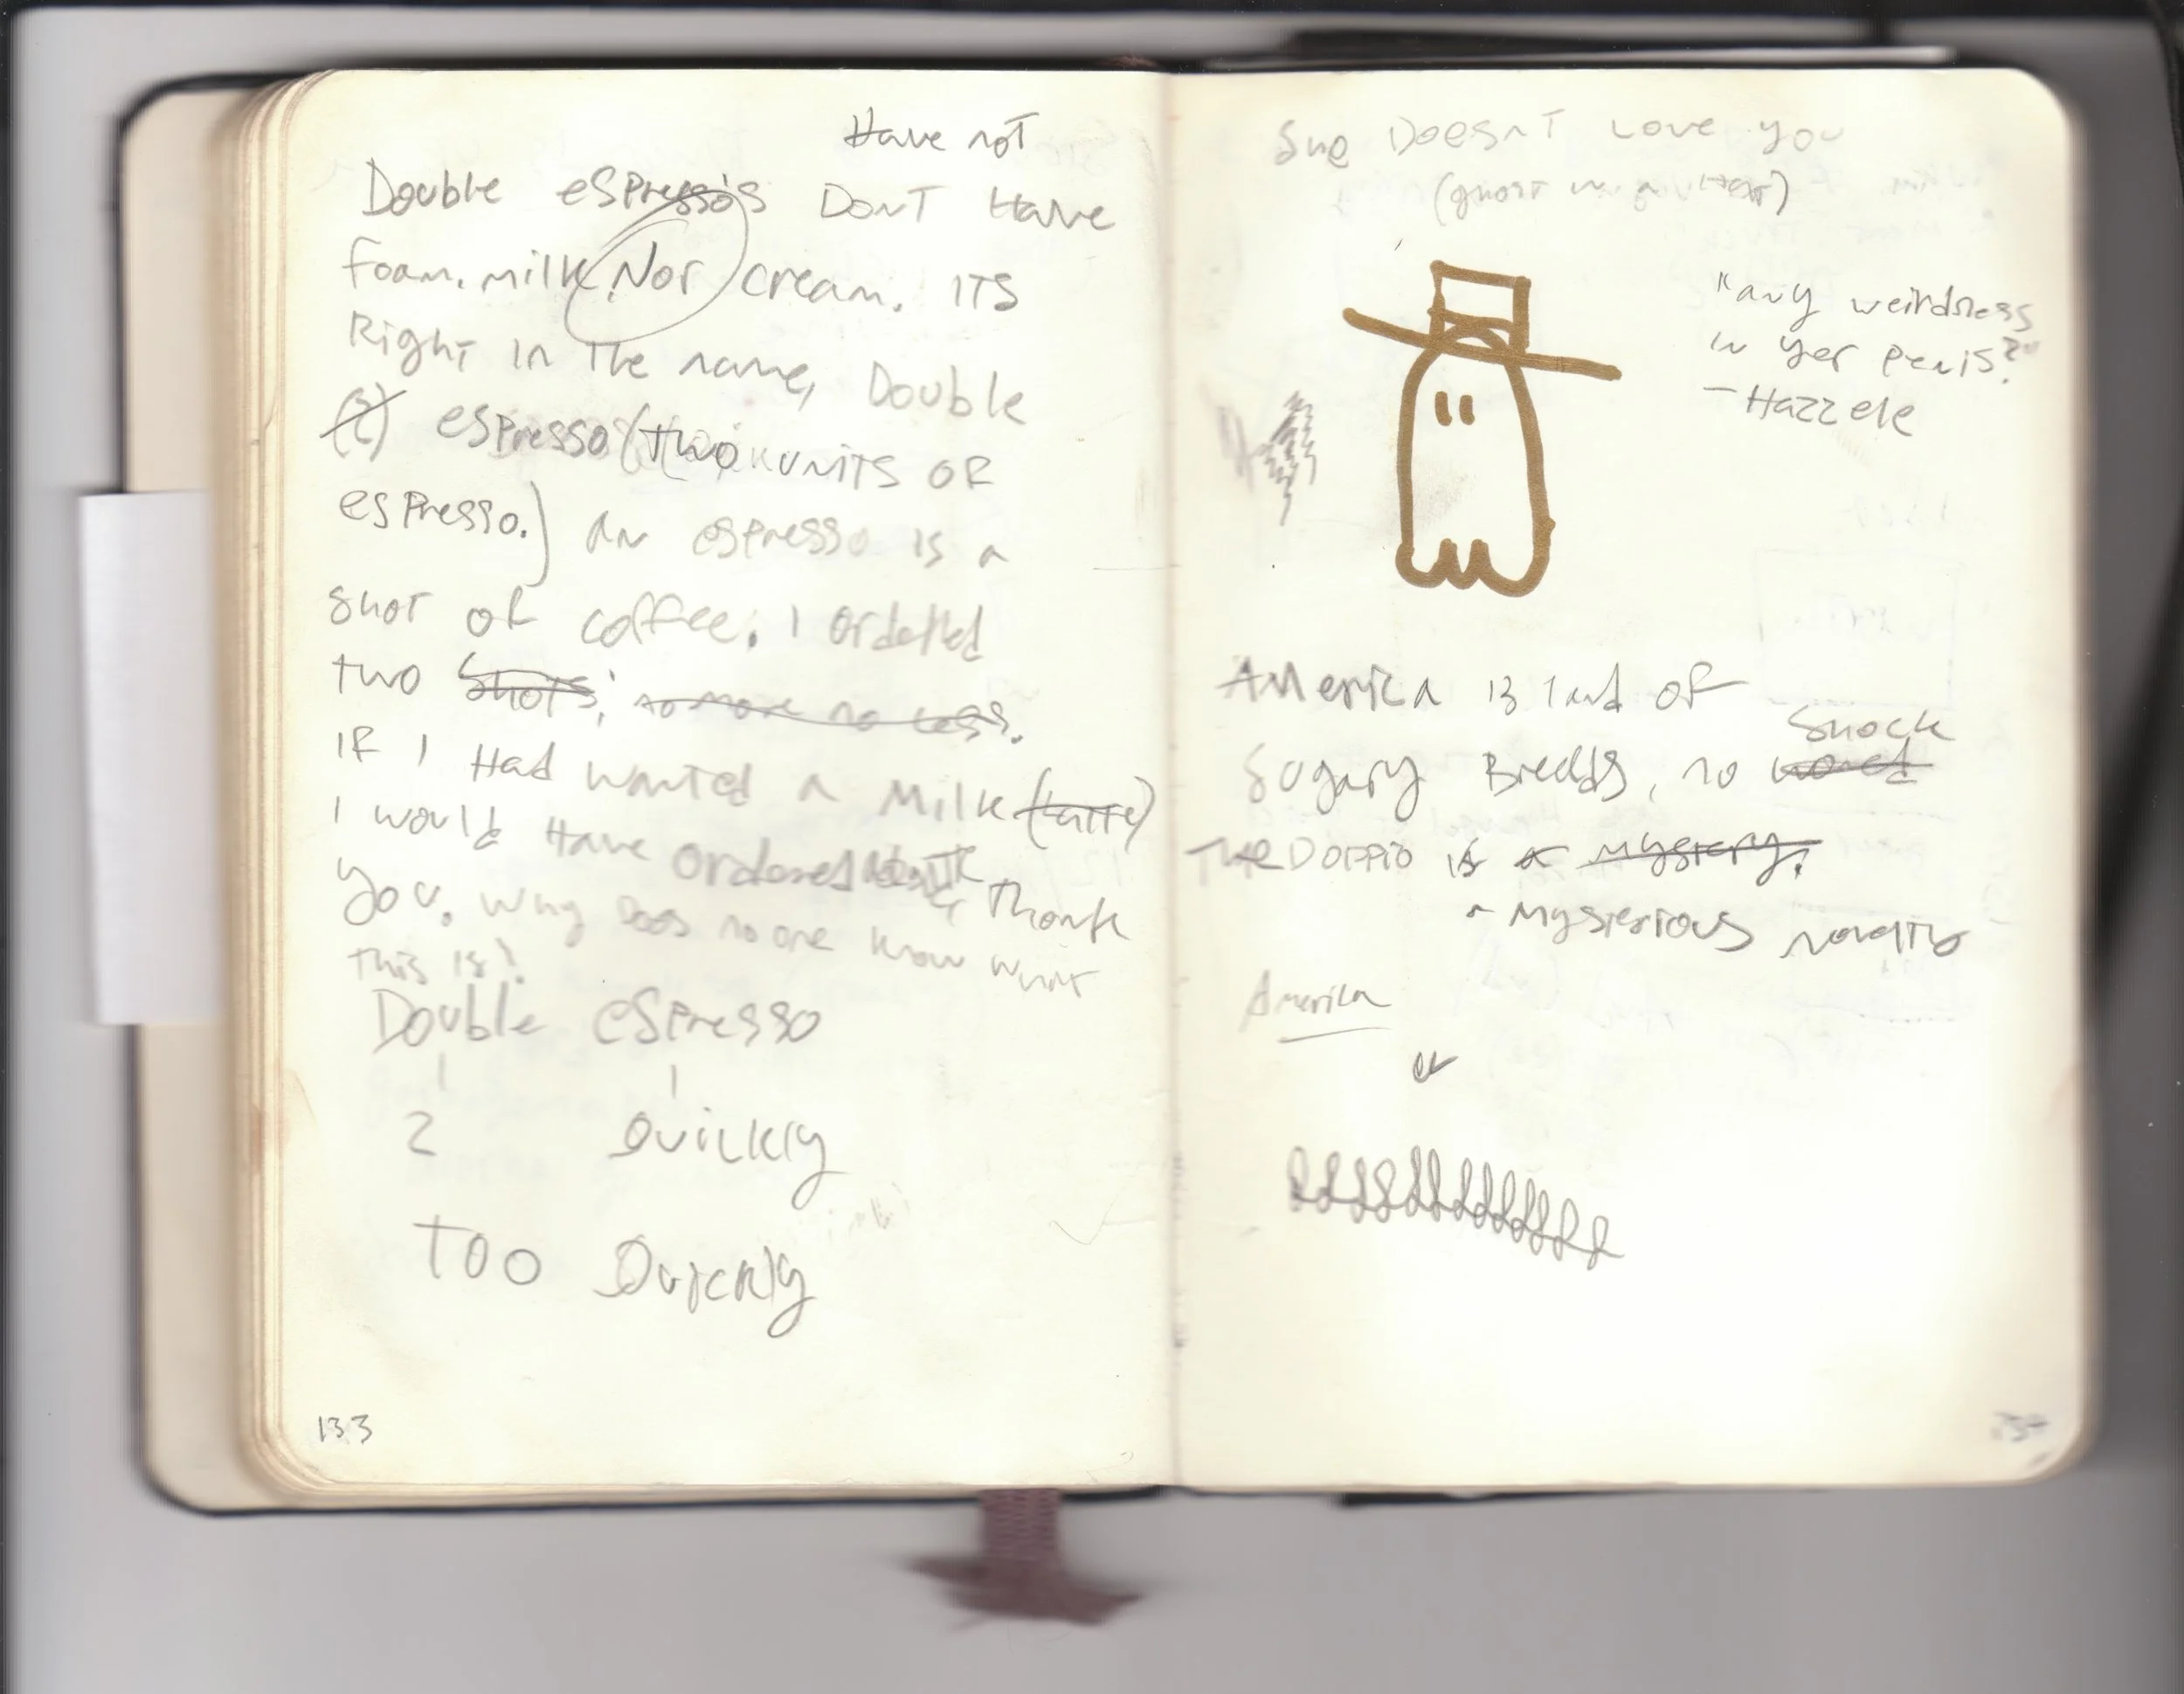 Have not
Double espresso's DONT Have
foam, milk, Nor cream. ITS
Right in the name, Double
(2) espresso (two units OF
espresso.) An espresso is a
shot of coffee. I ordered
two shots, no more no less.
IF I Had wanted a Milk (Latte)
I would Have ordered Thank
you. Why Does no one know what
this is?
Double espresso
2 Quickly
TOO Quickly
133
She Doesn't Love you
(ghost in a Hat)
"any weirdness
in yer penis?"
- Hazzele
America is land of
Shock
Sugary Breads, no
The Doppio is a mystery.
a mysterious novelty
America
or
134